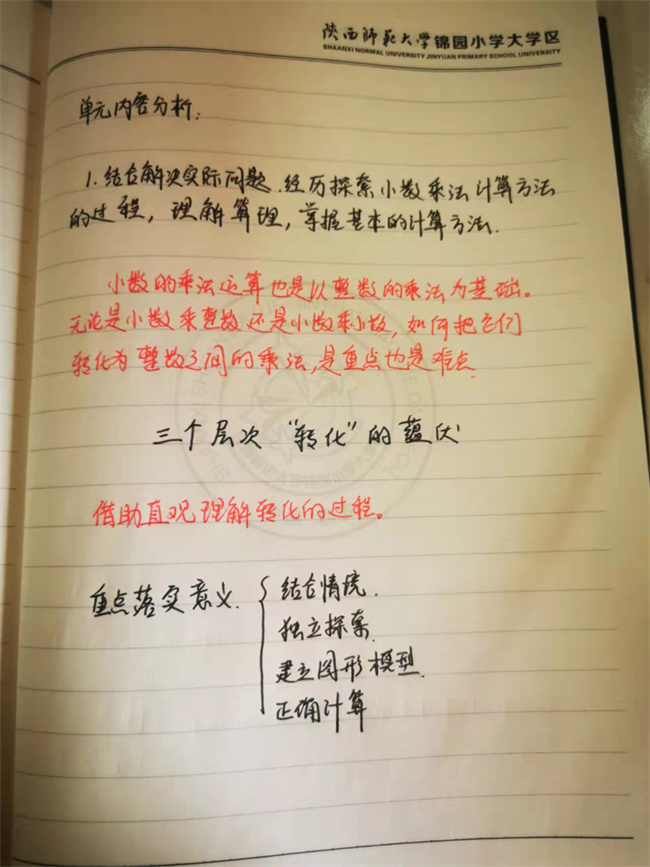 陕西师范大学锦园小学大学区
SHAANXI NORMAL UNIVERSITY JINYUAN PRIMARY SCHOOL UNIVERSITY
单元内容分析:
1. 结合解决实际问题.经历探索小数乘法计算方法
的过程,理解算理,掌握基本的计算方法.
小数的乘法运算也是以整数的乘法为基础。
无论是小数乘整数还是小数乘小数,如何把它们
转化为整数之间的乘法,是重点也是难点
三个层次“转化”的蕴伏
借助直观理解转化的过程。
重点落实意义.
结合情境.
独立探索.
建立图形模型.
正确计算